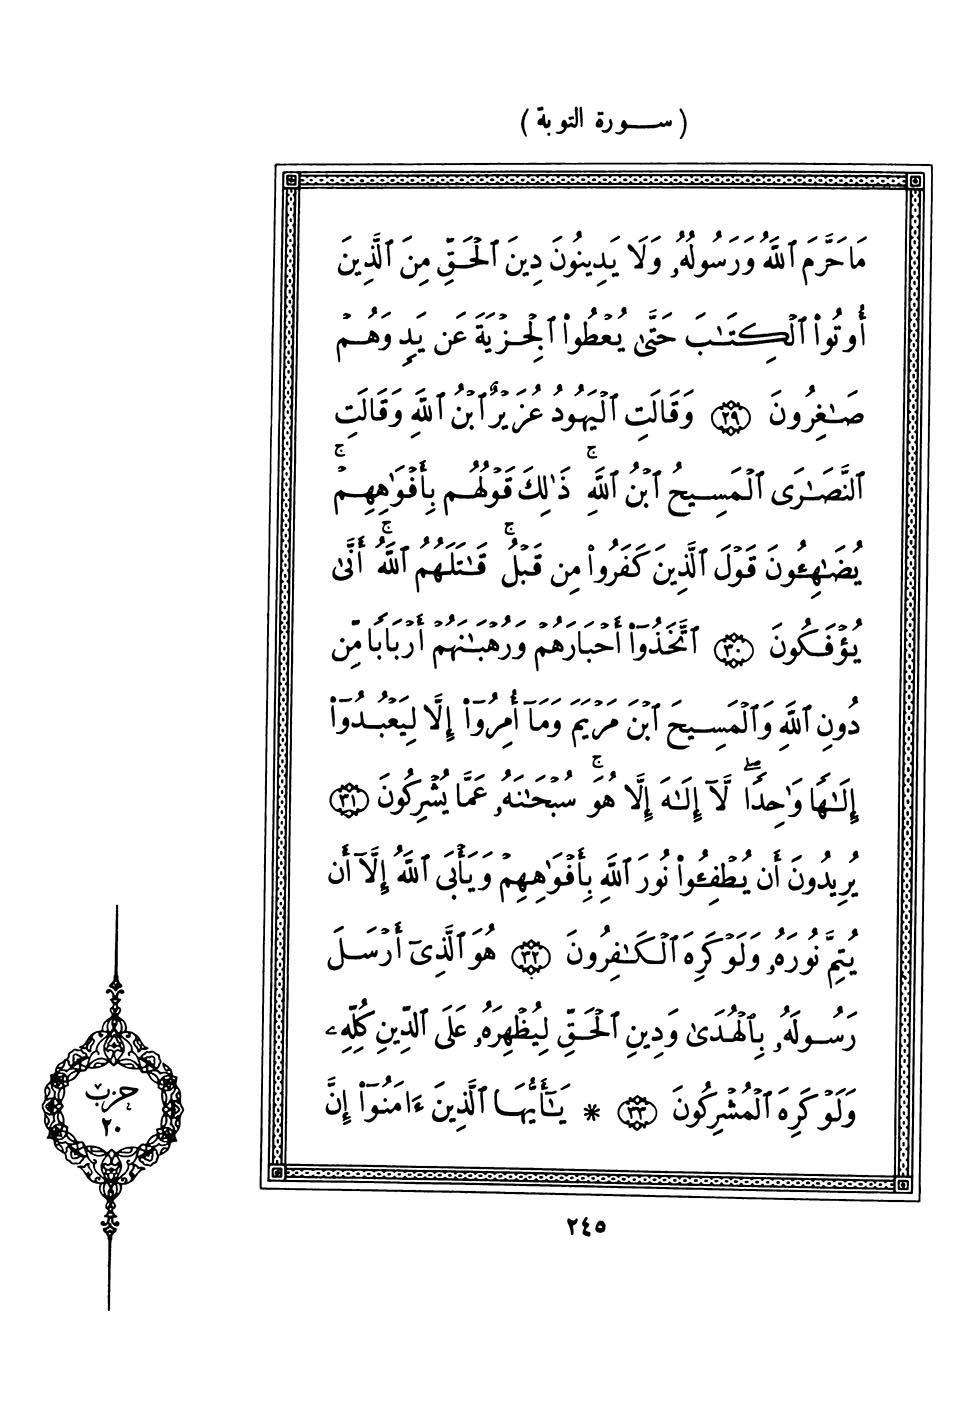 (سورة التوبة)
مَا حَرَّمَ ٱللَّهُ وَرَسُولُهُۥ وَلَا يَدِينُونَ دِينَ ٱلْحَقِّ مِنَ ٱلَّذِينَ
أُوتُوا۟ ٱلْكِتَـٰبَ حَتَّىٰ يُعْطُوا۟ ٱلْجِزْيَةَ عَن يَدٍ وَهُمْ
صَـٰغِرُونَ ٢٩ وَقَالَتِ ٱلْيَهُودُ عُزَيْرٌ ٱبْنُ ٱللَّهِ وَقَالَتِ
ٱلنَّصَـٰرَى ٱلْمَسِيحُ ٱبْنُ ٱللَّهِ ۚ ذَٰلِكَ قَوْلُهُم بِأَفْوَٰهِهِمْ ۚ
يُضَـٰهِـُٔونَ قَوْلَ ٱلَّذِينَ كَفَرُوا۟ مِن قَبْلُ ۚ قَـٰتَلَهُمُ ٱللَّهُ ۚ أَنَّىٰ
يُؤْفَكُونَ ٣٠ ٱتَّخَذُوٓا۟ أَحْبَارَهُمْ وَرُهْبَـٰنَهُمْ أَرْبَابًا مِّن
دُونِ ٱللَّهِ وَٱلْمَسِيحَ ٱبْنَ مَرْيَمَ وَمَآ أُمِرُوٓا۟ إِلَّا لِيَعْبُدُوٓا۟
إِلَـٰهًا وَٰحِدًا ۖ لَّآ إِلَـٰهَ إِلَّا هُوَ ۚ سُبْحَـٰنَهُۥ عَمَّا يُشْرِكُونَ ٣١
يُرِيدُونَ أَن يُطْفِـُٔوا۟ نُورَ ٱللَّهِ بِأَفْوَٰهِهِمْ وَيَأْبَى ٱللَّهُ إِلَّآ أَن
يُتِمَّ نُورَهُۥ وَلَوْ كَرِهَ ٱلْكَـٰفِرُونَ ٣٢ هُوَ ٱلَّذِىٓ أَرْسَلَ
رَسُولَهُۥ بِٱلْهُدَىٰ وَدِينِ ٱلْحَقِّ لِيُظْهِرَهُۥ عَلَى ٱلدِّينِ كُلِّهِۦ
وَلَوْ كَرِهَ ٱلْمُشْرِكُونَ ٣٣ * يَـٰٓأَيُّهَا ٱلَّذِينَ ءَامَنُوٓا۟ إِنَّ
حزب
٢٠
٢٤٥